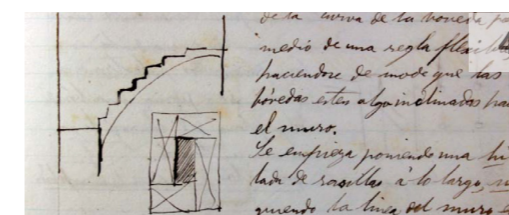 de la curva de la boveda pa
medió de una regla flexib
haciendose de modo que las
bóvedas esten algo inclinadas ha
el muro.
Se empieza poniendo una hi
lada de rasillas á lo largo,
guiendo la linea del muro